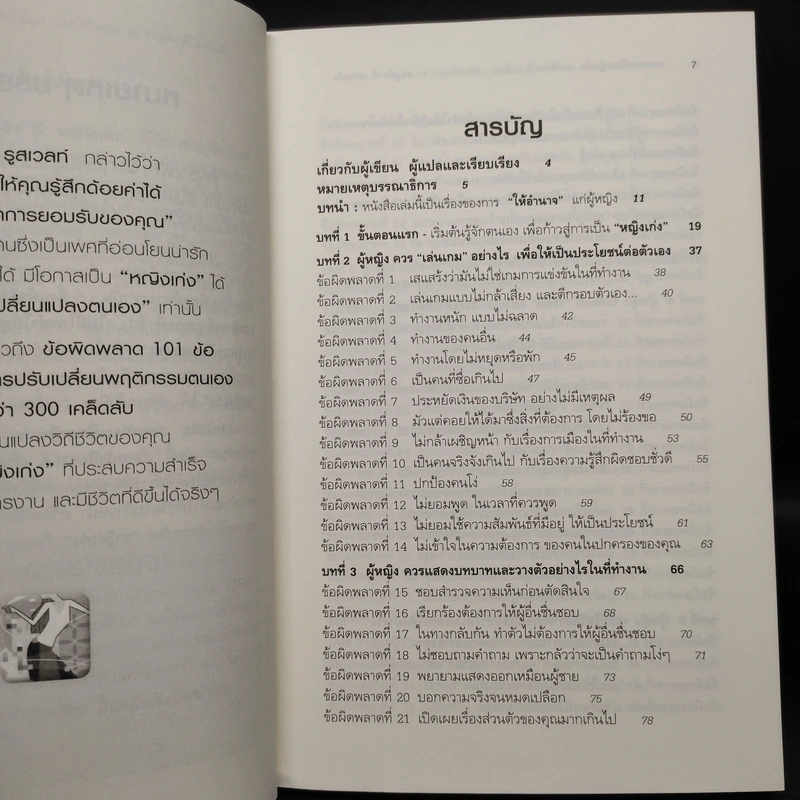 รูสเวลท์ กล่าวไว้ว่า
ให้คุณรู้สึกด้อยค่าได้
าการยอมรับของคุณ”
านซึ่งเป็นเพศที่อ่อนโยนน่ารัก
ได้ มีโอกาสเป็น “หญิงเก่ง” ได้
ปลี่ยนแปลงตนเอง” เท่านั้น
วถึง ข้อผิดพลาด 101 ข้อ
ารปรับเปลี่ยนพฤติกรรมตนเอง
ว่า 300 เคล็ดลับ
นแปลงวิถีชีวิตของคุณ
ญิงเก่ง” ที่ประสบความสำเร็จ
ารงาน และมีชีวิตที่ดีขึ้นได้จริงๆ
7
สารบัญ
เกี่ยวกับผู้เขียน ผู้แปลและเรียบเรียง 4
หมายเหตุบรรณาธิการ 5
บทนำ : หนังสือเล่มนี้เป็นเรื่องของการ “ให้อำนาจ” แก่ผู้หญิง 11
บทที่ 1 ขั้นตอนแรก - เริ่มต้นรู้จักตนเอง เพื่อก้าวสู่การเป็น “หญิงเก่ง” 19
บทที่ 2 ผู้หญิง ควร “เล่นเกม” อย่างไร เพื่อให้เป็นประโยชน์ต่อตัวเอง 37
ข้อผิดพลาดที่ 1 เสแสร้งว่ามันไม่ใช่เกมการแข่งขันในที่ทำงาน 38
ข้อผิดพลาดที่ 2 เล่นเกมแบบไม่กล้าเสี่ยง และตีกรอบตัวเอง... 40
ข้อผิดพลาดที่ 3 ทำงานหนัก แบบไม่ฉลาด 42
ข้อผิดพลาดที่ 4 ทำงานของคนอื่น 44
ข้อผิดพลาดที่ 5 ทำงานโดยไม่หยุดหรือพัก 45
ข้อผิดพลาดที่ 6 เป็นคนที่ซื่อเกินไป 47
ข้อผิดพลาดที่ 7 ประหยัดเงินของบริษัท อย่างไม่มีเหตุผล 49
ข้อผิดพลาดที่ 8 มัวแต่คอยให้ได้มาซึ่งสิ่งที่ต้องการ โดยไม่ร้องขอ 50
ข้อผิดพลาดที่ 9 ไม่กล้าเผชิญหน้า กับเรื่องการเมืองในที่ทำงาน 53
ข้อผิดพลาดที่ 10 เป็นคนจริงจังเกินไป กับเรื่องความรู้สึกผิดชอบชั่วดี 55
ข้อผิดพลาดที่ 11 ปกป้องคนโง่ 58
ข้อผิดพลาดที่ 12 ไม่ยอมพูด ในเวลาที่ควรพูด 59
ข้อผิดพลาดที่ 13 ไม่ยอมใช้ความสัมพันธ์ที่มีอยู่ ให้เป็นประโยชน์ 61
ข้อผิดพลาดที่ 14 ไม่เข้าใจในความต้องการ ของคนในปกครองของคุณ 63
บทที่ 3 ผู้หญิง ควรแสดงบทบาทและวางตัวอย่างไรในที่ทำงาน 66
ข้อผิดพลาดที่ 15 ชอบสำรวจความเห็นก่อนตัดสินใจ 67
ข้อผิดพลาดที่ 16 เรียกร้องต้องการให้ผู้อื่นชื่นชอบ 68
ข้อผิดพลาดที่ 17 ในทางกลับกัน ทำตัวไม่ต้องการให้ผู้อื่นชื่นชอบ 70
ข้อผิดพลาดที่ 18 ไม่ชอบถามคำถาม เพราะกลัวว่าจะเป็นคำถามโง่ๆ 71
ข้อผิดพลาดที่ 19 พยายามแสดงออกเหมือนผู้ชาย 73
ข้อผิดพลาดที่ 20 บอกความจริงจนหมดเปลือก 75
ข้อผิดพลาดที่ 21 เปิดเผยเรื่องส่วนตัวของคุณมากเกินไป 78